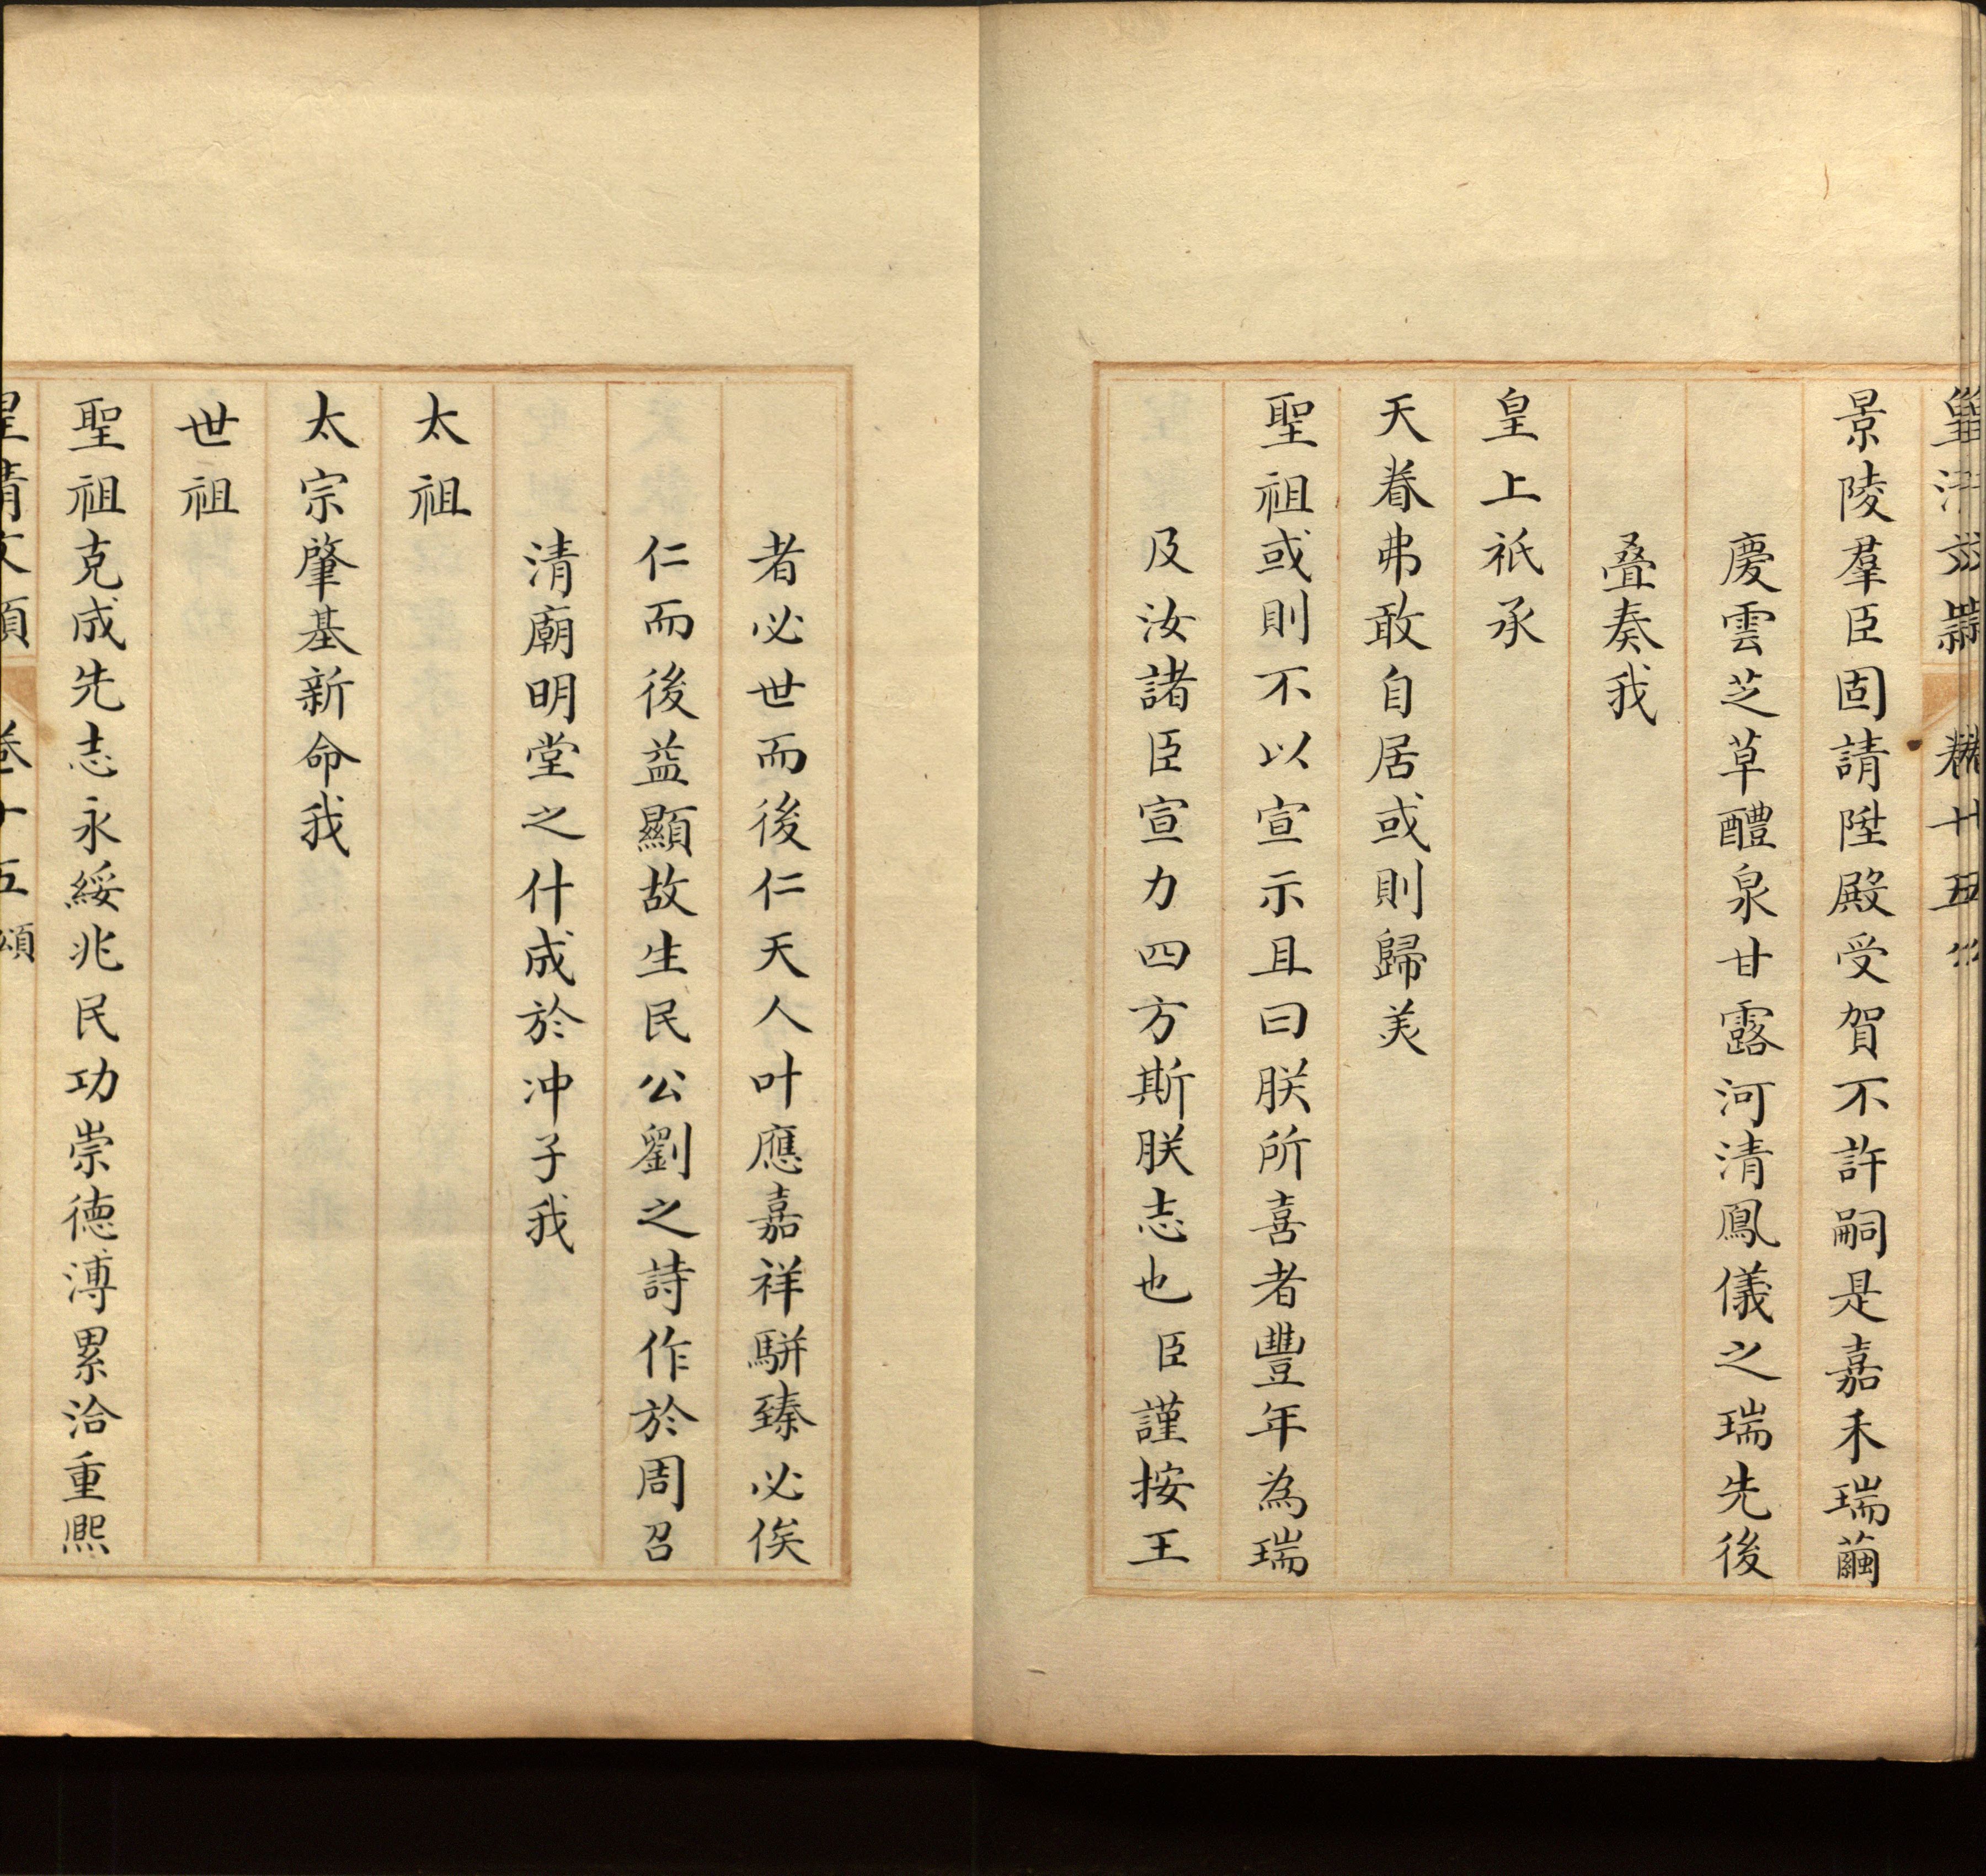 景陵羣臣固請陞殿受賀不許嗣是嘉禾瑞繭
慶雲芝草醴泉甘露河清鳳儀之瑞先後
疊奏我
皇上祇承
天眷弗敢自居或則歸美
聖祖或則不以宣示且曰朕所喜者豐年為瑞
及汝諸臣宣力四方斯朕志也臣謹按王
者必世而後仁天人叶應嘉祥駢臻必俟
仁而後益顯故生民公劉之詩作於周召
清廟明堂之什成於冲子我
太祖
太宗肇基新命我
世祖
聖祖克成先志永綏兆民功崇德溥累洽重熙
皇清文頴 卷十五 頌